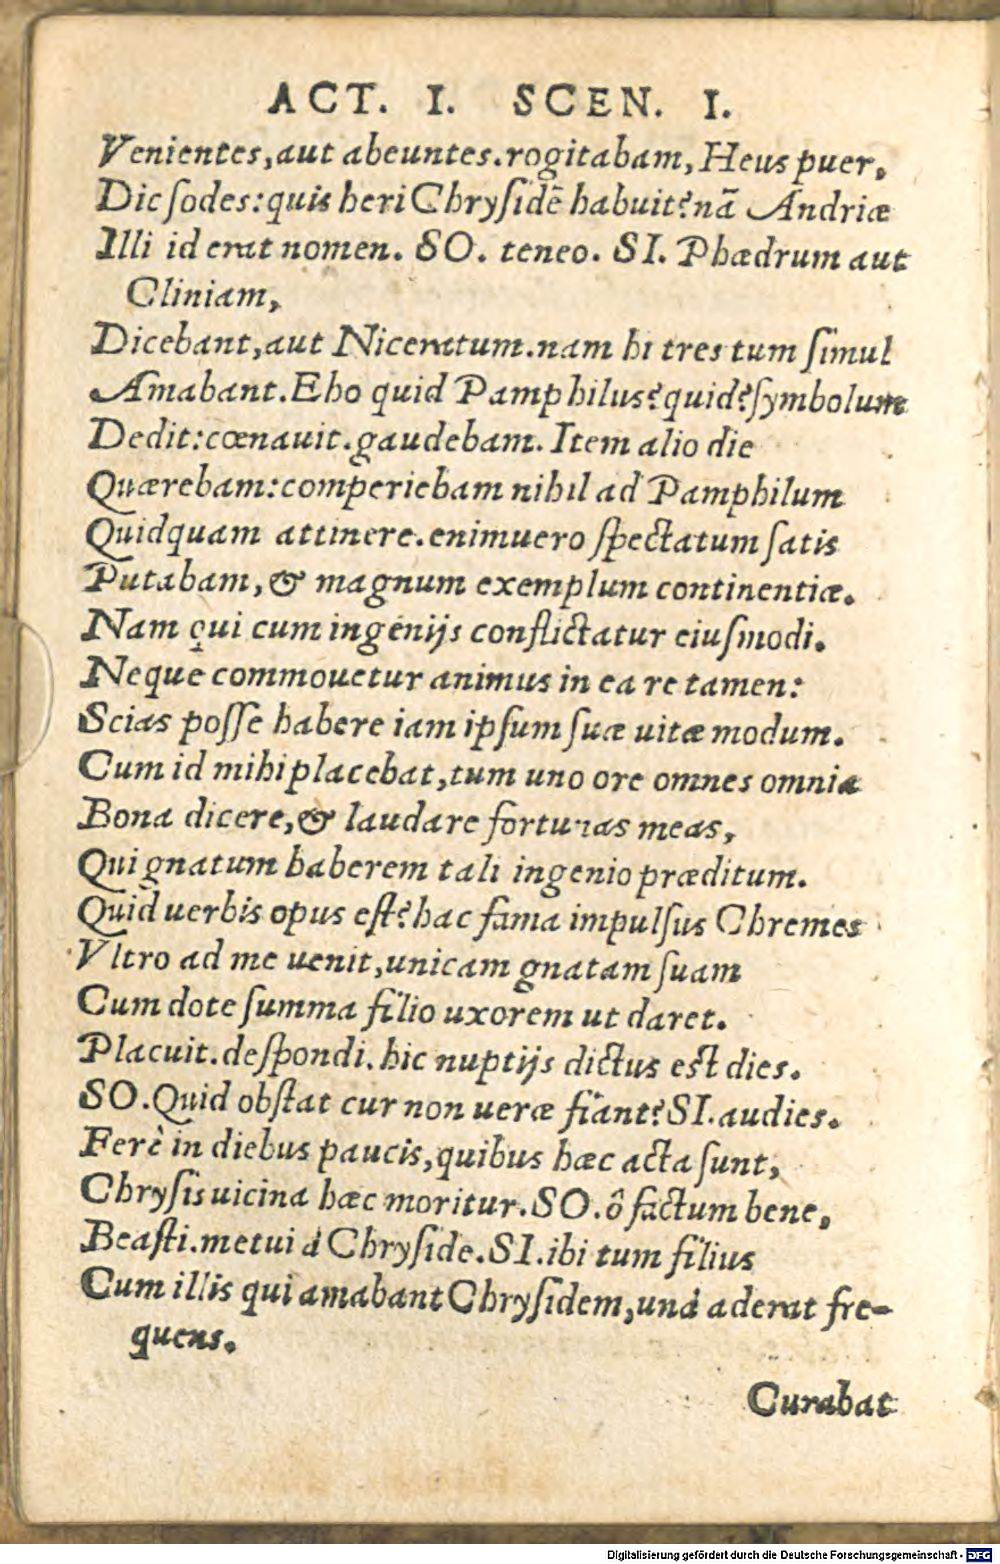 ACT. I. SCEN. I.
Venientes, aut abeuntes. rogitabam, Heus puer,
Dic ſodes: quis heri Chryſidē habuit? nā Andriæ
Illi id erat nomen. SO. teneo. SI. Phædrum aut
Cliniam,
Dicebant, aut Niceratum. nam hi tres tum ſimul
Amabant. Eho quid Pamphilus? quid? ſymbolum
Dedit: cœnauit. gaudebam. Item alio die
Quærebam: comperiebam nihil ad Pamphilum
Quidquam attinere. enimuero ſpectatum ſatis
Putabam, & magnum exemplum continentiæ.
Nam qui cum ingenijs conflictatur eiuſmodi.
Neque commouetur animus in ea re tamen:
Scias poſſe habere iam ipſum ſuæ uitæ modum.
Cum id mihi placebat, tum uno ore omnes omnia
Bona dicere, & laudare fortunas meas,
Qui gnatum haberem tali ingenio præditum.
Quid uerbis opus eſt? hac fama impulſus Chremes
Vltro ad me uenit, unicam gnatam ſuam
Cum dote ſumma filio uxorem ut daret.
Placuit. deſpondi. hic nuptijs dictus eſt dies.
SO. Quid obſtat cur non ueræ fiant? SI. audies.
Ferè in diebus paucis, quibus hæc acta ſunt,
Chryſis uicina hæc moritur. SO. ô factum bene,
Beaſti. metui à Chryſide. SI. ibi tum filius
Cum illis qui amabant Chryſidem, unà aderat fre-
quens.
Curabat
Digitalisierung gefördert durch die Deutsche Forschungsgemeinschaft - DFG